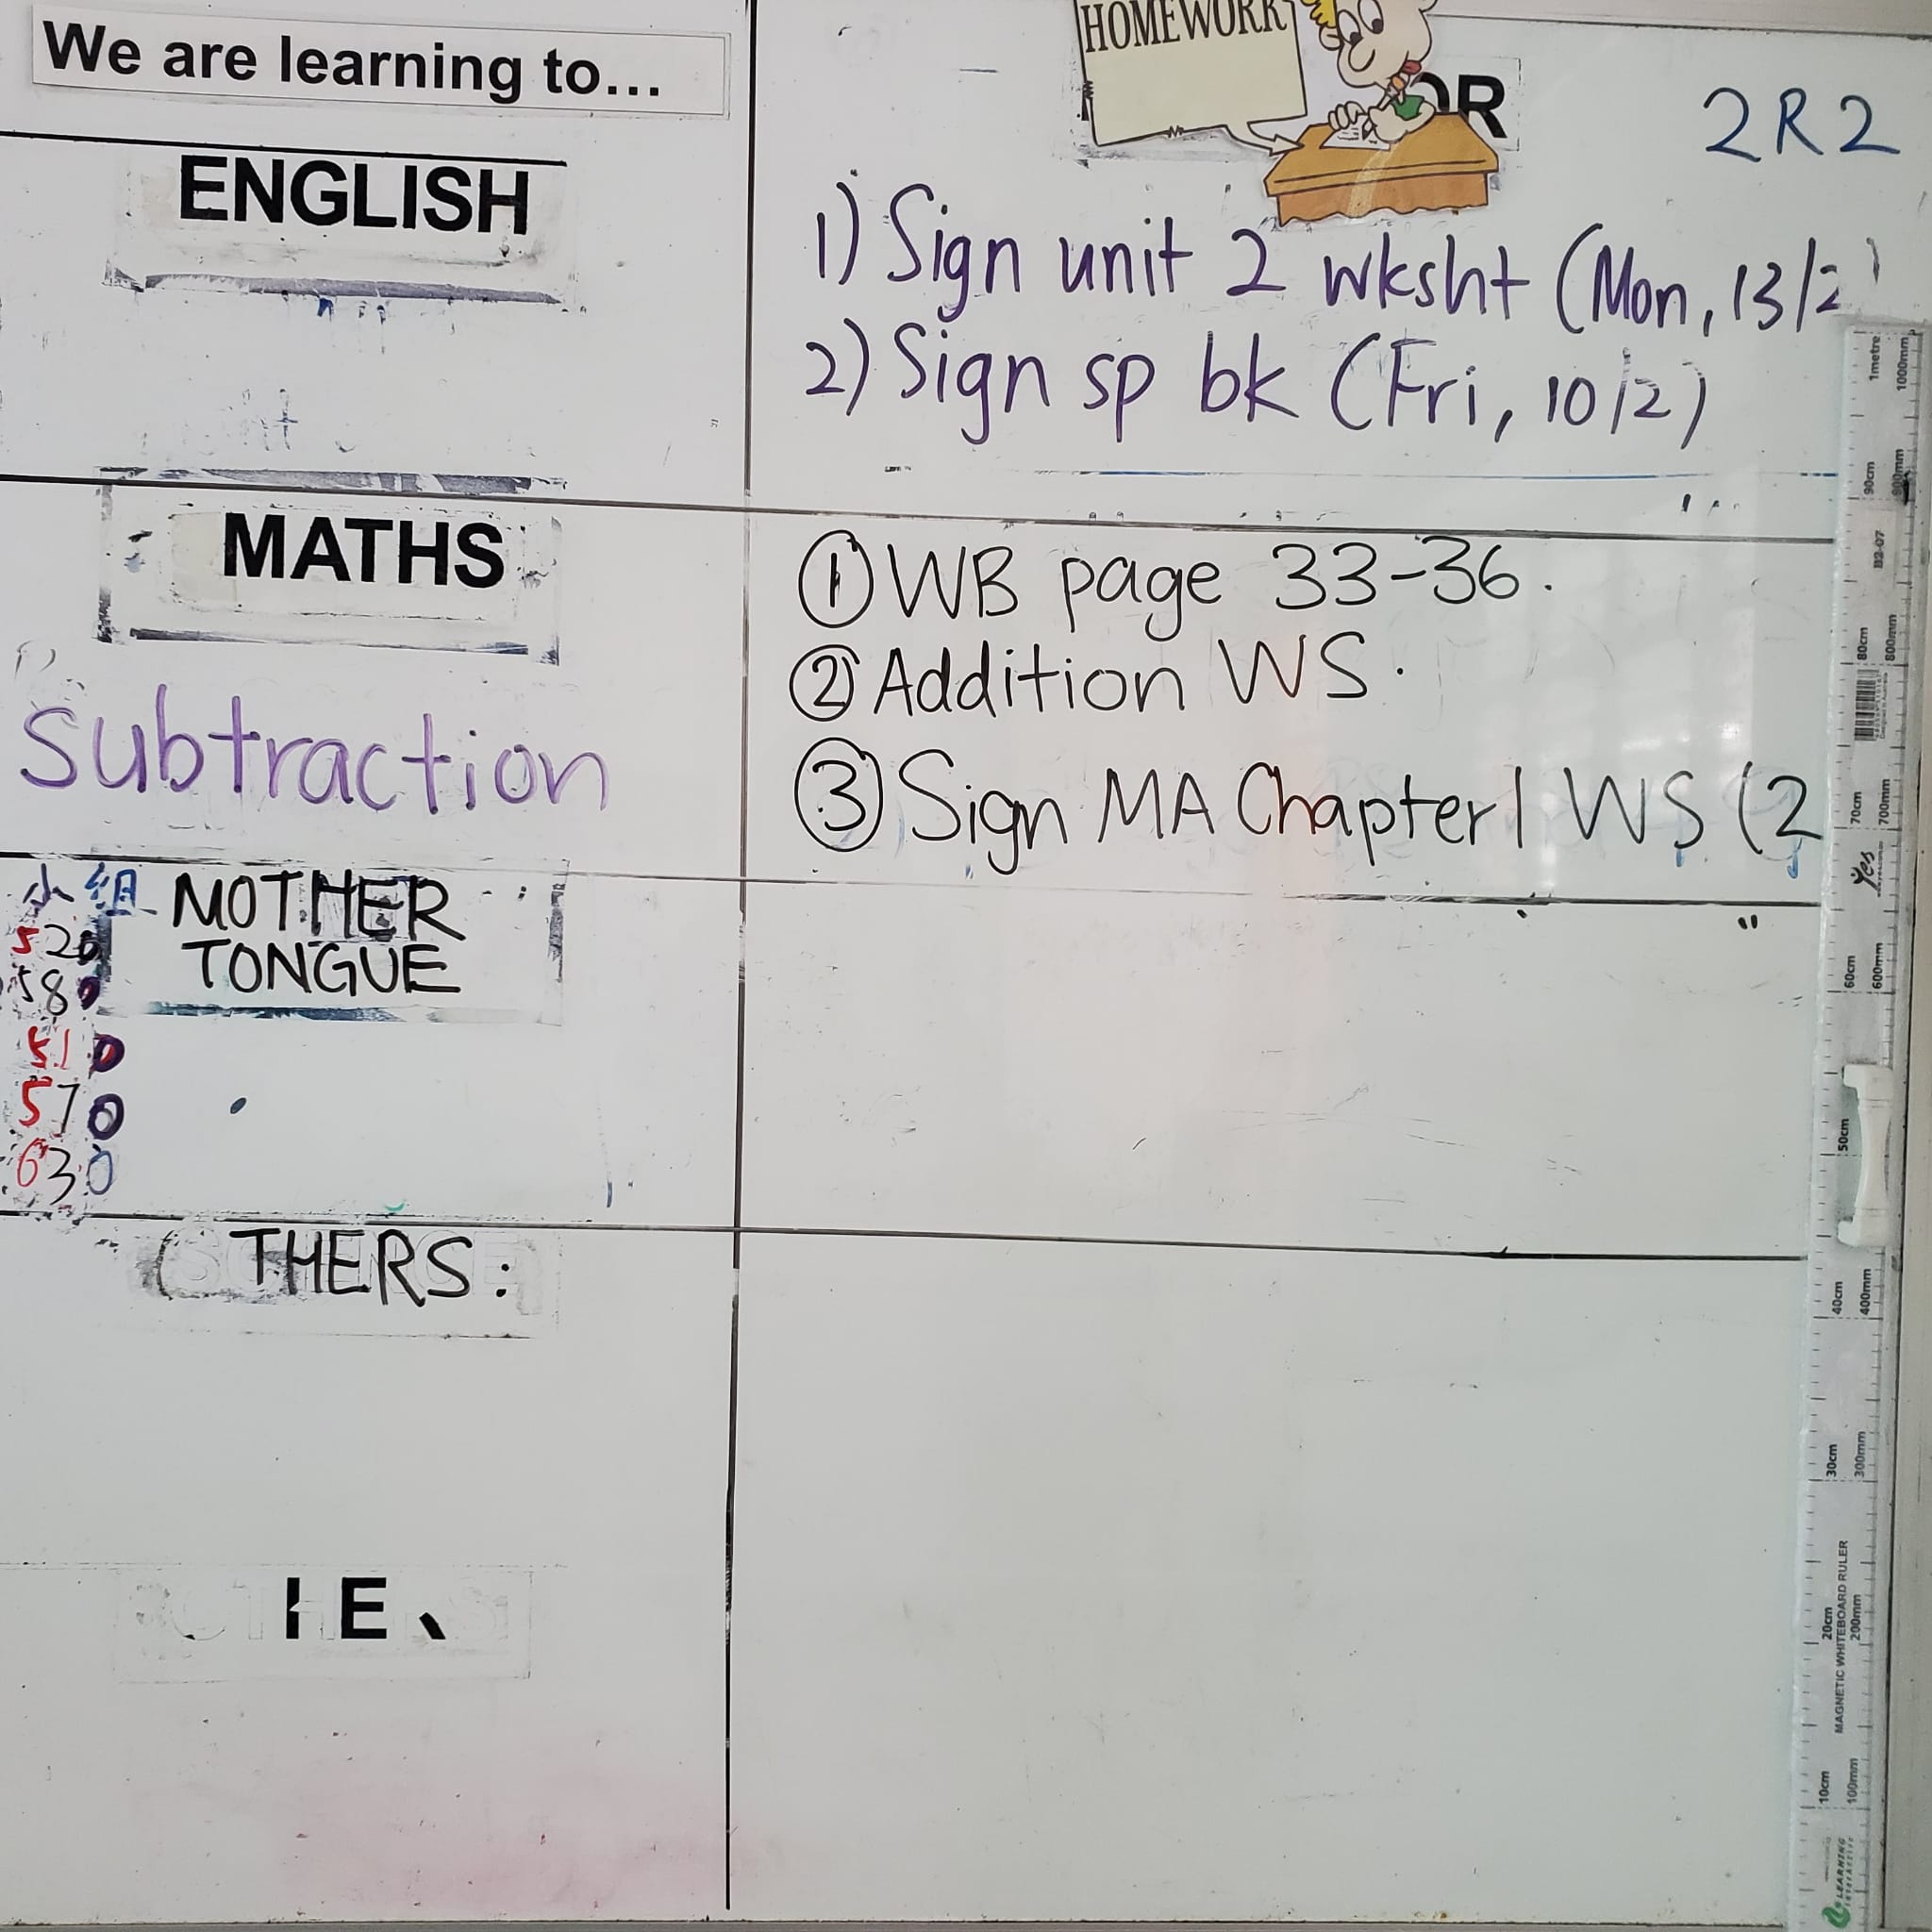 We are learning to...
HOMEWORK
OR
2R2
ENGLISH
1) Sign unit 2 wksht (Mon, 13/2)
2) Sign sp bk (Fri, 10/2)
MATHS
subtraction
① WB page 33-36.
② Addition WS.
③ Sign MA Chapter 1 WS (2
小组
MOTHER
TONGUE
520
580
510
570
630
THERS:
I E
1metre 1000mm
90cm 900mm
80cm 800mm
70cm 700mm
Yes
60cm 600mm
50cm
40cm 400mm
30cm 300mm
20cm 200mm
MAGNETIC WHITEBOARD RULER
10cm 100mm
LEARNING